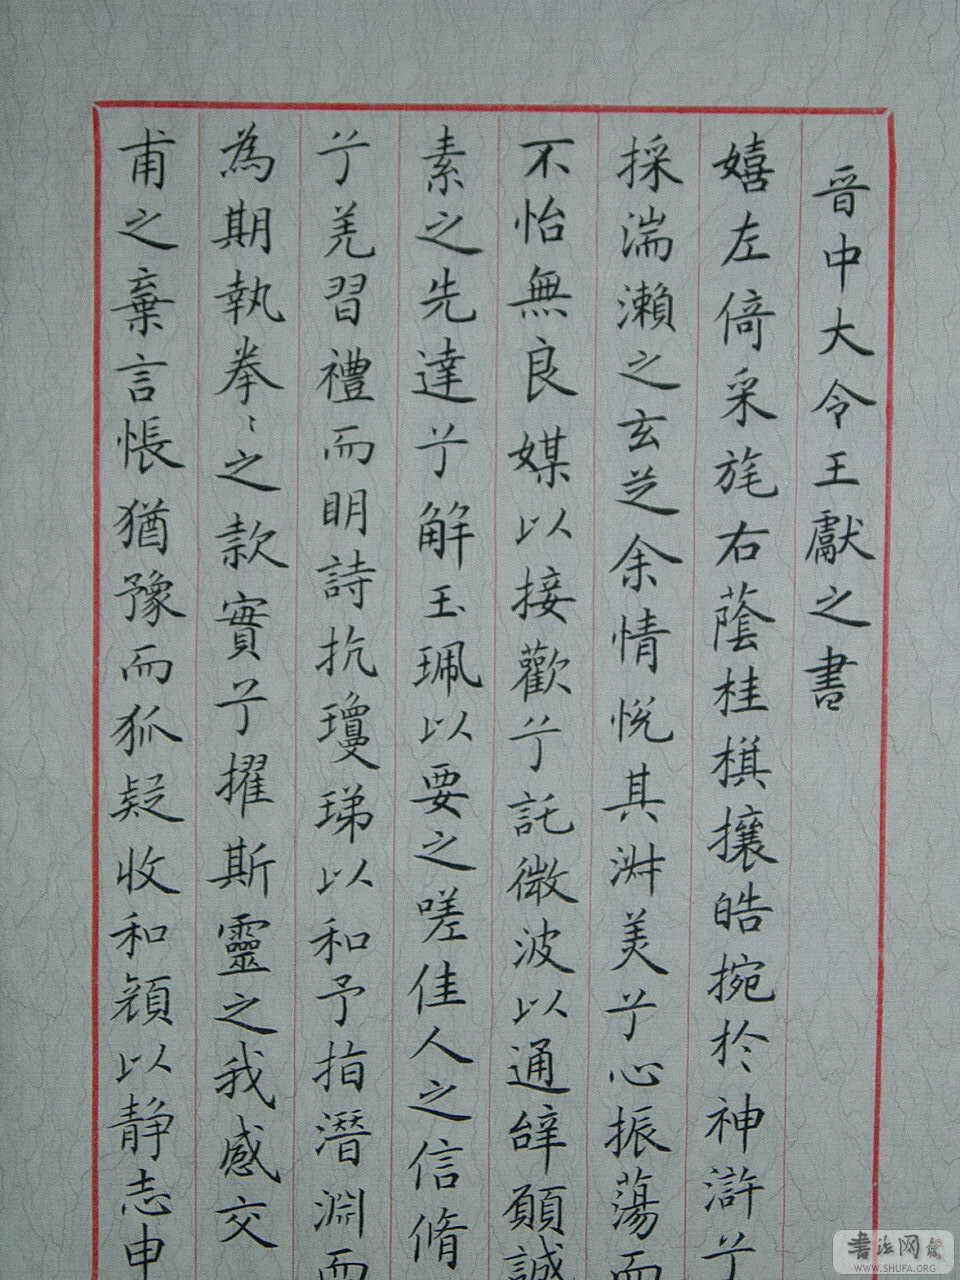 晋中大令王獻之書
嬉左倚采旄右蔭桂棋攘皓捥於神滸兮
採湍瀨之玄芝余情悅其淑美兮心振蕩而
不怡無良媒以接歡兮託微波以通辞願誠
素之先達兮解玉珮以要之嗟佳人之信脩
兮羌習禮而明詩抗瓊珶以和予指潛淵而
為期執拳〻之款實兮擢斯靈之我感交
甫之棄言悵猶豫而狐疑收和顏以静志申
書法网
WWW.SHUFA.ORG